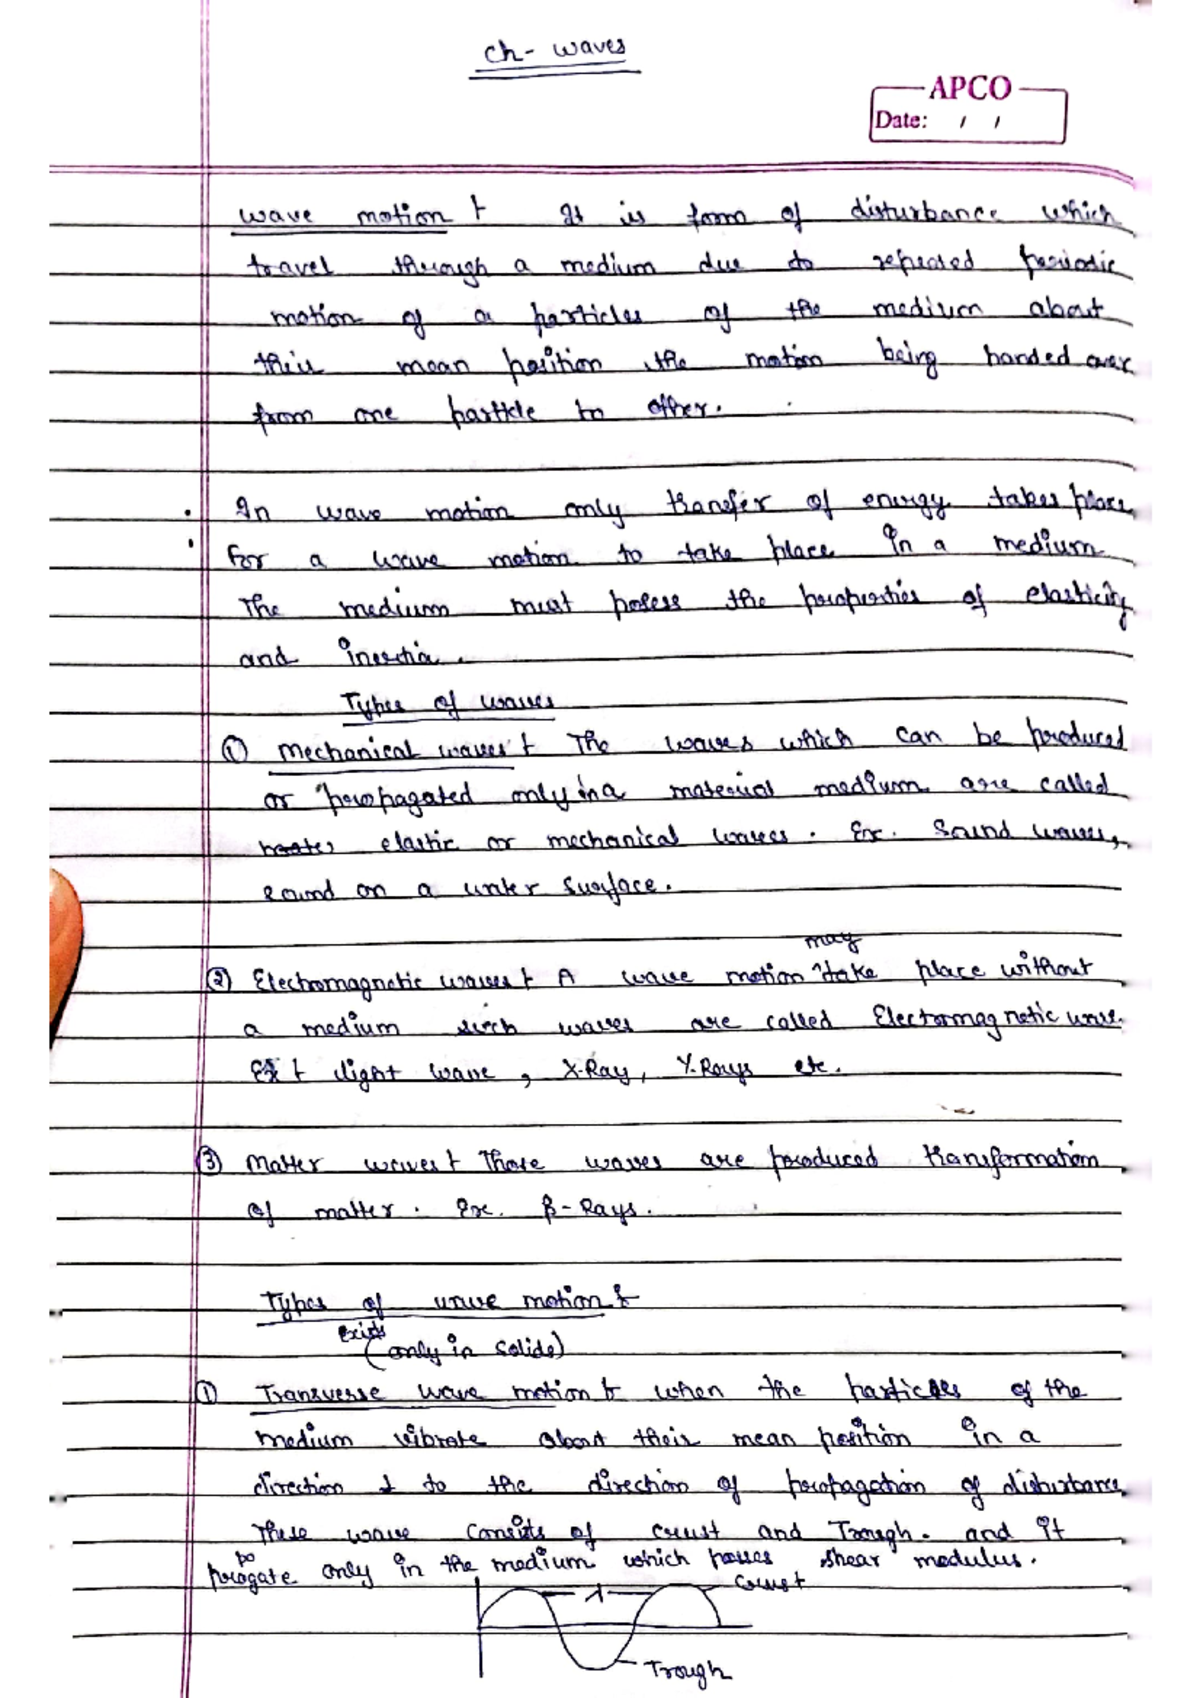 Ch- waves
APCO
Date: / /
wave motion :- It is form of disturbance which
travel through a medium due to repeated periodic
motion of a particles of the medium about
their mean position the motion being handed over
from one particle to other.
. In wave motion only transfer of energy takes place.
. For a wave motion to take place in a medium
The medium must posess the properties of elasticity
and inertia.
Types of waves
① mechanical waves :- The waves which can be produced
or propagated only in a material medium are called
elastic or mechanical waves. Ex. Sound waves,
sound on a water surface.
may
② Electromagnetic waves :- A wave motion ^take place without
a medium such waves are called Electormagnetic wave.
Ex :- light wave, X-Ray, Y-Rays etc.
③ Matter waves :- Those waves are produced transformation
of matter. Ex. β-Rays.
Types of wave motion :-
exists (only in solids)
① Transverse wave motion :- when the particles of the
medium vibrate about their mean position in a
direction ⊥ to the direction of propagation of disturbance.
These wave consists of crust and Trough. and it
propogate only in the medium which posses shear modulus.
λ
Crust
Trough